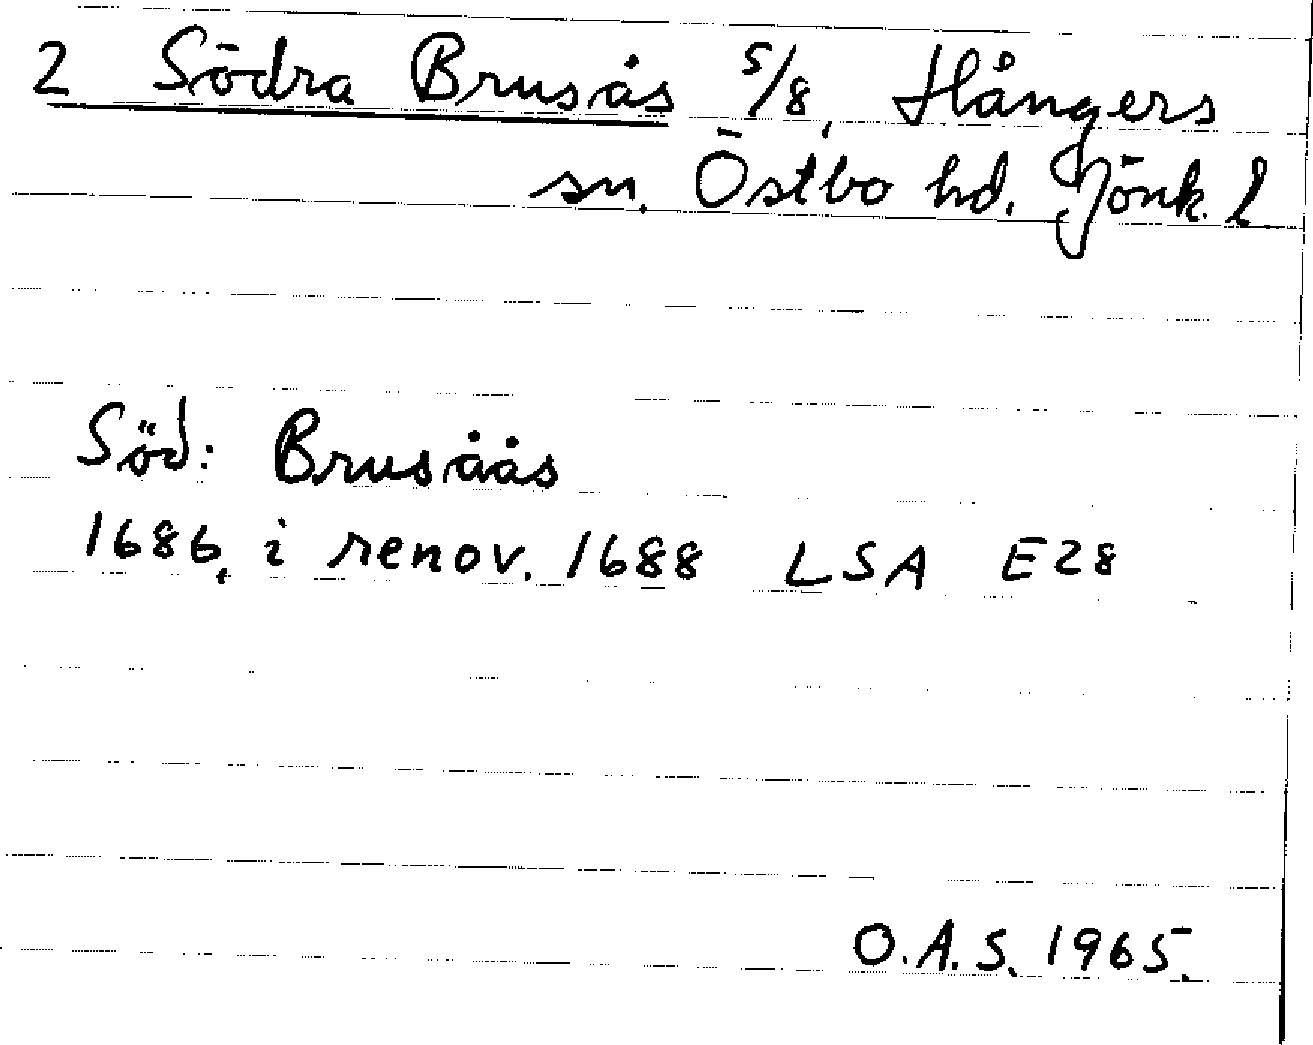 2 Södra Brusås 5/8, Hångers
sn. Östbo hd. Jönk. l
Söd: Brusåås
1686, i renov. 1688 LSA E28
O.A.S. 1965.